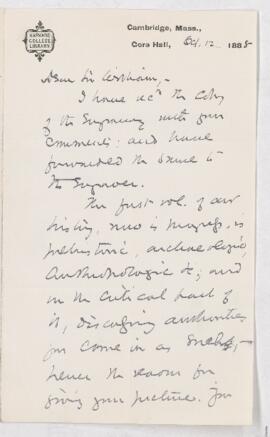 HARVARD
COLLEGE
LIBRARY
Cambridge, Mass.,
Gore Hall, Oct. 12 1885
Dear Sir William,-
I have recd the copy
of the Engraving with your
comments: and have
forwarded the same to
the Engraver.
The first vol. of our
history, now in progress, is
prehistoric, archaeologic,
Anthropologic &c; and
in the critical part of
it, discussing authorities
you come in as such,-
hence the reason for
giving your picture. You